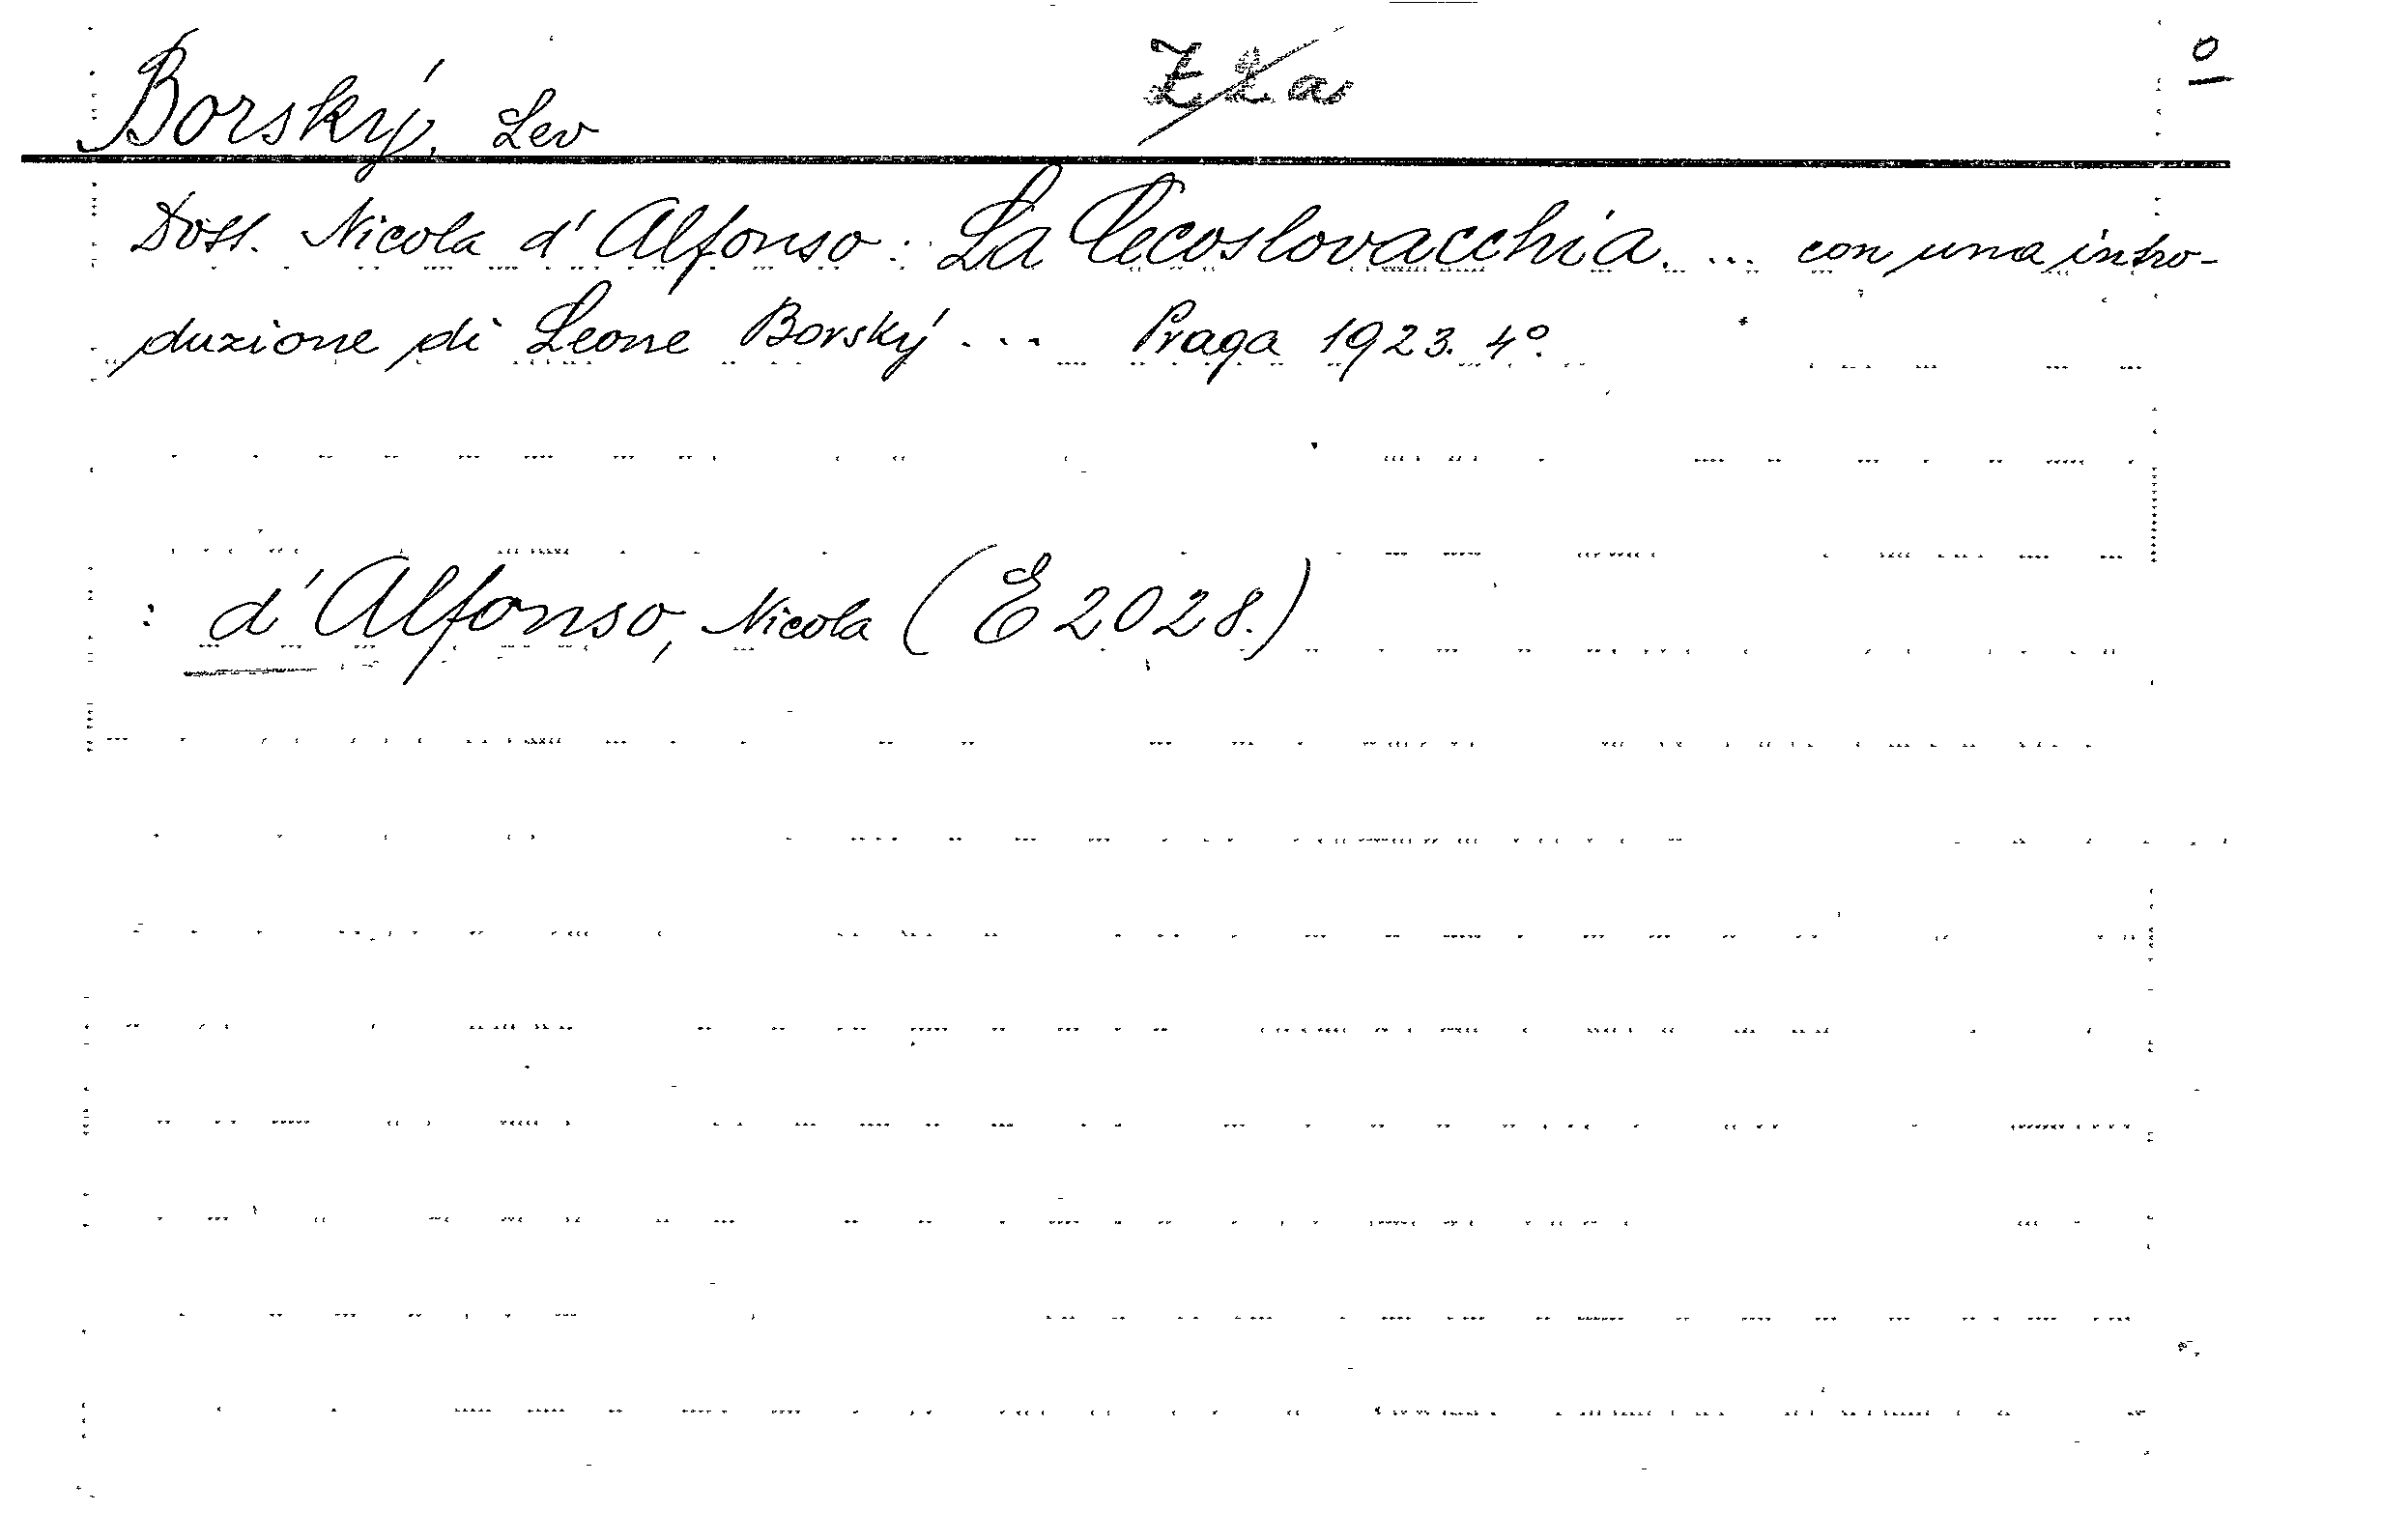 Borský, Lev
o
Dott. Nicola d'Alfonso: La Cecoslovacchia. ... con una intro-
duzione di Leone Borský ... Praga 1923. 4°.
: d'Alfonso, Nicola (E 2028.)